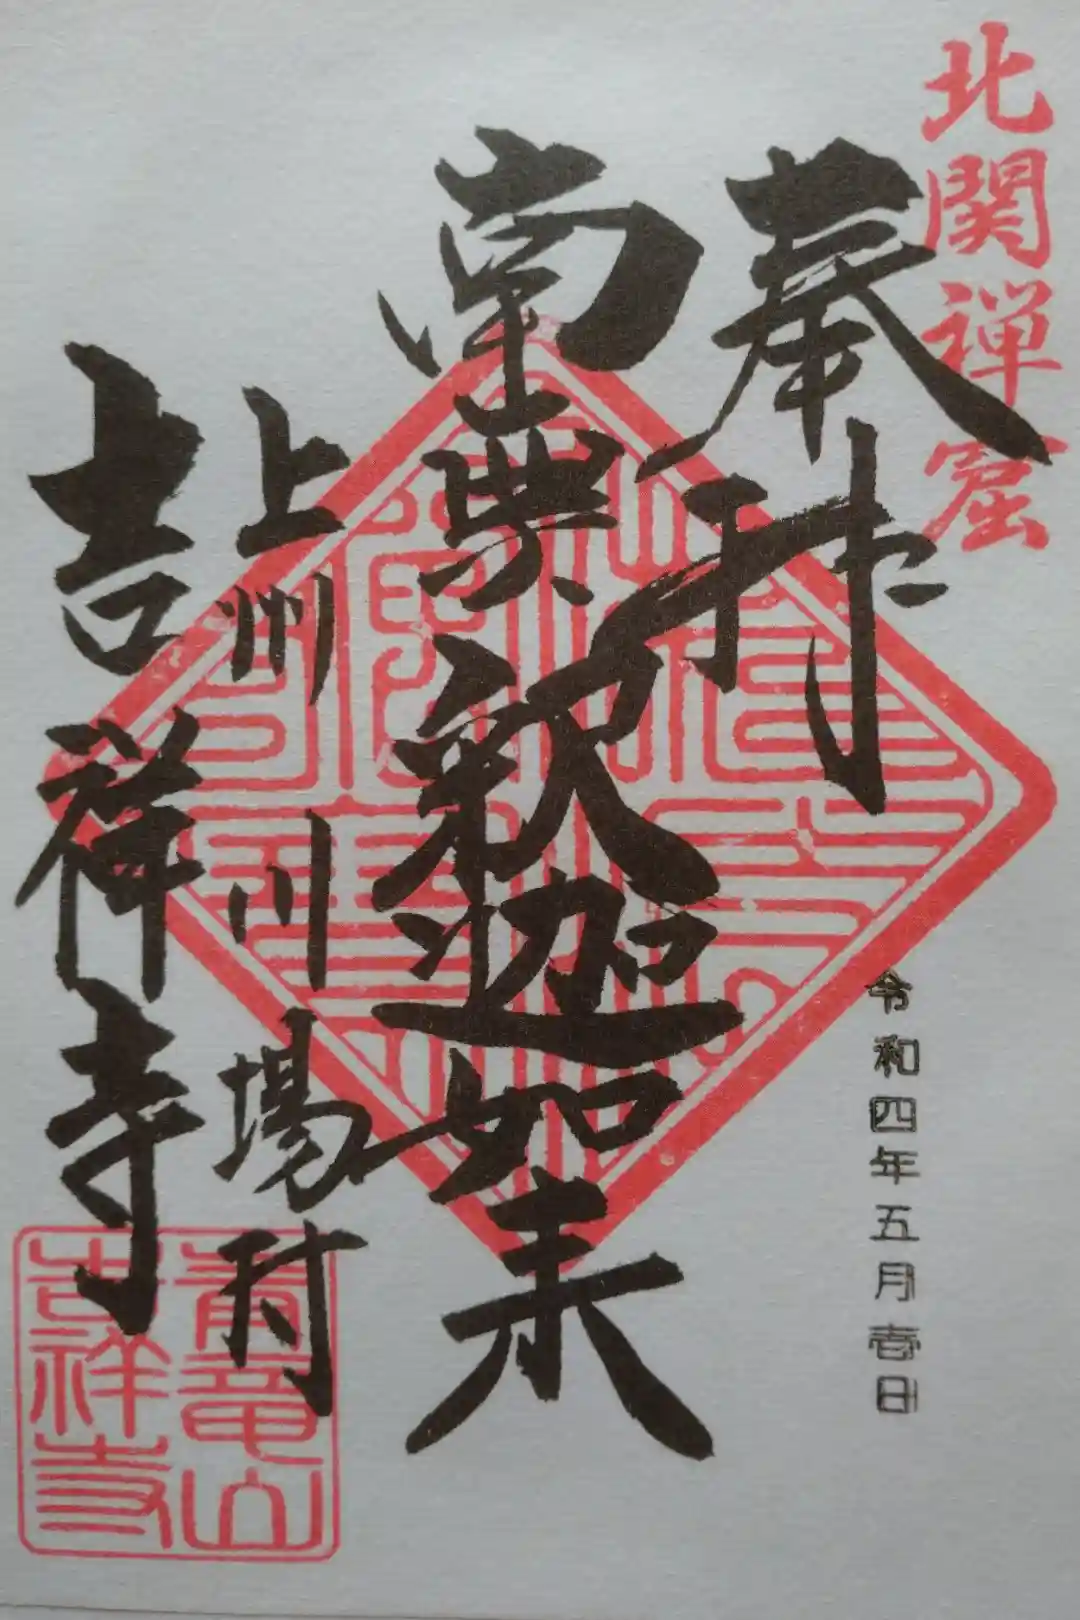 北関禅窟
奉拝
令和四年五月壱日
南無釈迦如来
上州川場村
吉祥寺
青竜山
吉祥寺